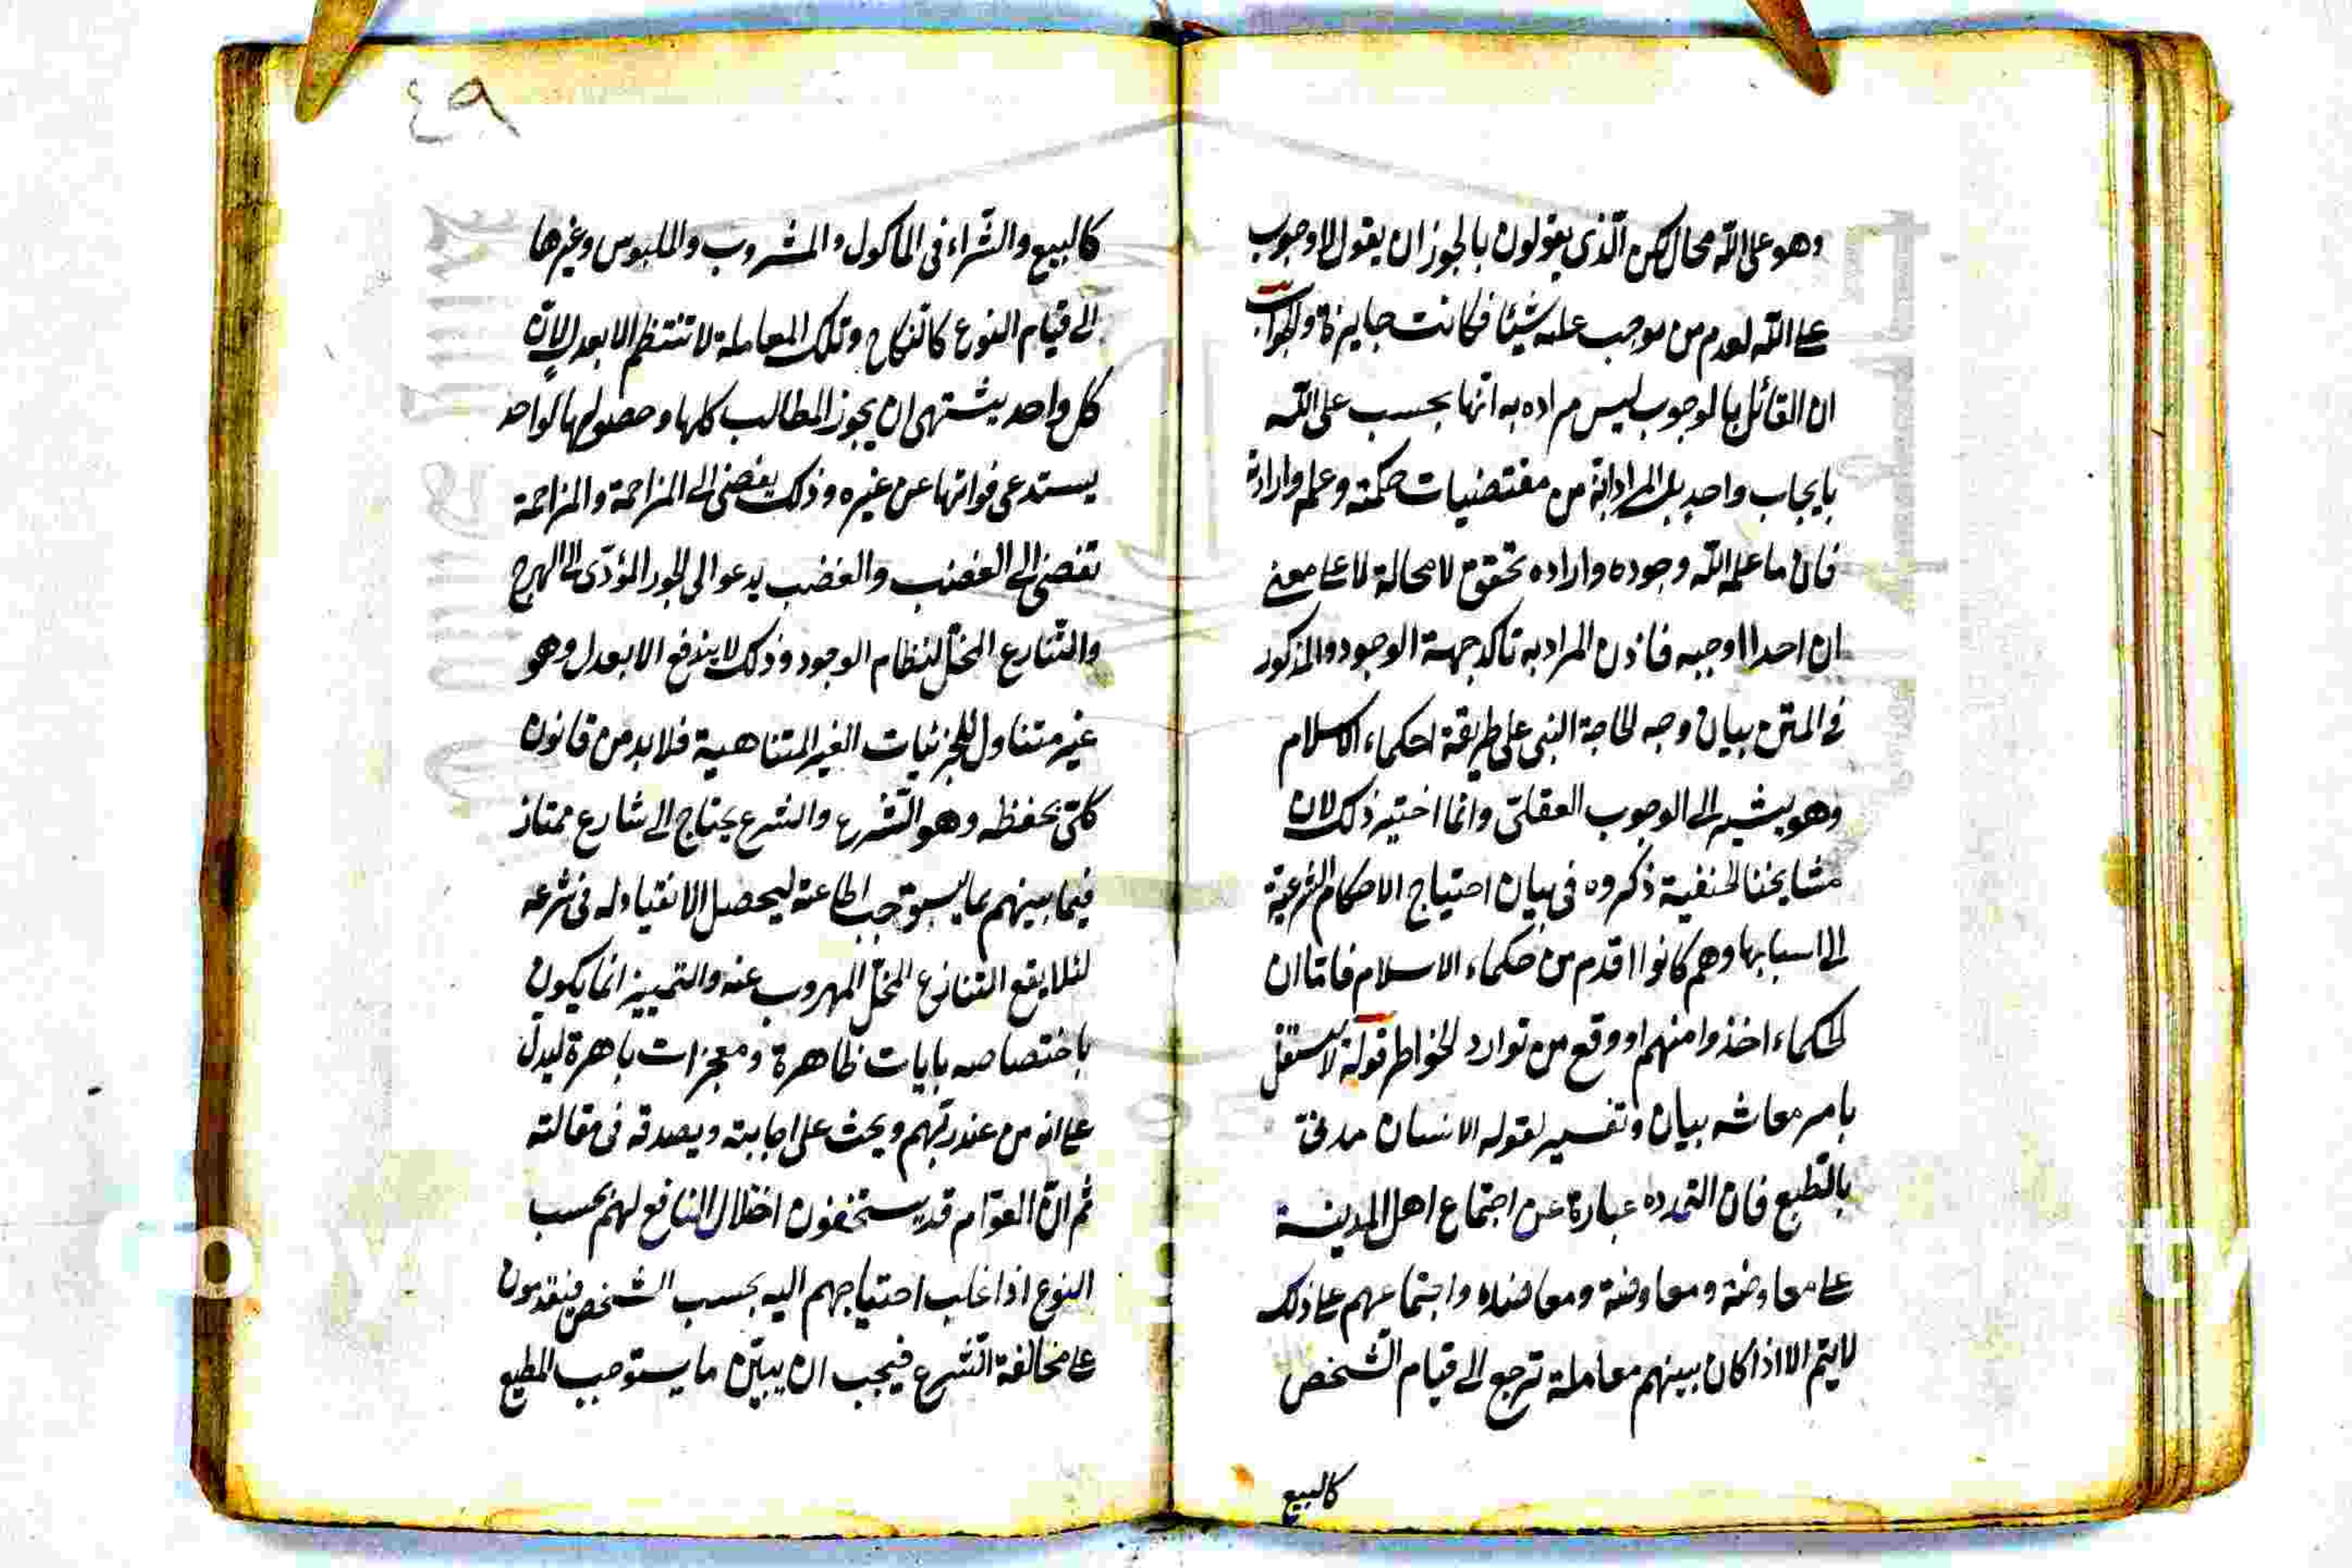 وهو على الله محال لكن الذى يقولون بالجوز ان يقول لا وجوب
على الله لعدم من يوجب عليه شيئا فكانت جايزة والجواب
ان القائل بالوجوب ليس مراده به انها بحسب على الله
بايجاب واحد بل المراد انه من مقتضيات حكمته وعلمه وارادته
فان ما علم الله وجوده واراده تحقق لا محالة لا على معنى
ان احدا اوجبه فاذن المراد به تاكد جهة الوجود والمذكور
فى المتن بيان وجه لحاجة النبى على طريقة احكماء الاسلام
وهو يشير الى الوجوب العقلى وانما اختير ذلك لان
مشايخنا لحنفية ذكروه فى بيان احتياج الاحكام الشرعية
الى اسبابها وهم كانوا اقدم من حكماء الاسلام فاما ان
لحكماء اخذوا منهم او وقع من توارد لخواطر قوله لا يستقل
بامر معاشه بيان وتفسير لقوله الانسان مدنى
بالطبع فان التمدده عبارة عن اجتماع اهل المدينة
على معاوضة ومعاوضة ومعاضده واجتماعهم على ذلك
لا يتم الا اذا كان بينهم معاملة ترجع الى قيام الشخص
كالبيع
٤٩
كالبيع والشراء فى الماكول والمشروب والملبوس وغيرها
الى قيام النوع كالنكاح وتلك المعاملة لا تنتظم الا بعدل لان
كل واحد يشتهى ان يجوز المطالب كلها وحصولها لواحد
يستدعى فواتها عن غيره وذلك يفضى الى المزاحمة والمزاحمة
تفضى الى الغضب والغضب يدعو الى الجور المؤدى الى الهرج
والتنازع المخل لنظام الوجود وذلك لا يندفع الا بعدل وهو
غير متناول للجزئيات الغير المتناهية فلا بد من قانون
كلى يحفظه وهو الشرع والشرع يحتاج الى شارع ممتاز
فيما بينهم بما يستوجب الطاعة ليحصل الانقياد له فى شرعه
لئلا يقع التنازع المخل المهروب عنه والتمييز انما يكون
باختصاصه بايات ظاهرة ومعجزات باهرة ليدل
على انه من عند ربهم ويحث على اجابته ويصدقه فى مقالته
ثم ان العوام قد يستخفون اختلال النافع لهم بحسب
النوع اذا غلب احتياجهم اليه بحسب الشخص فيقدمون
على مخالفة الشرع فيجب ان يبين ما يستوجب المطيع